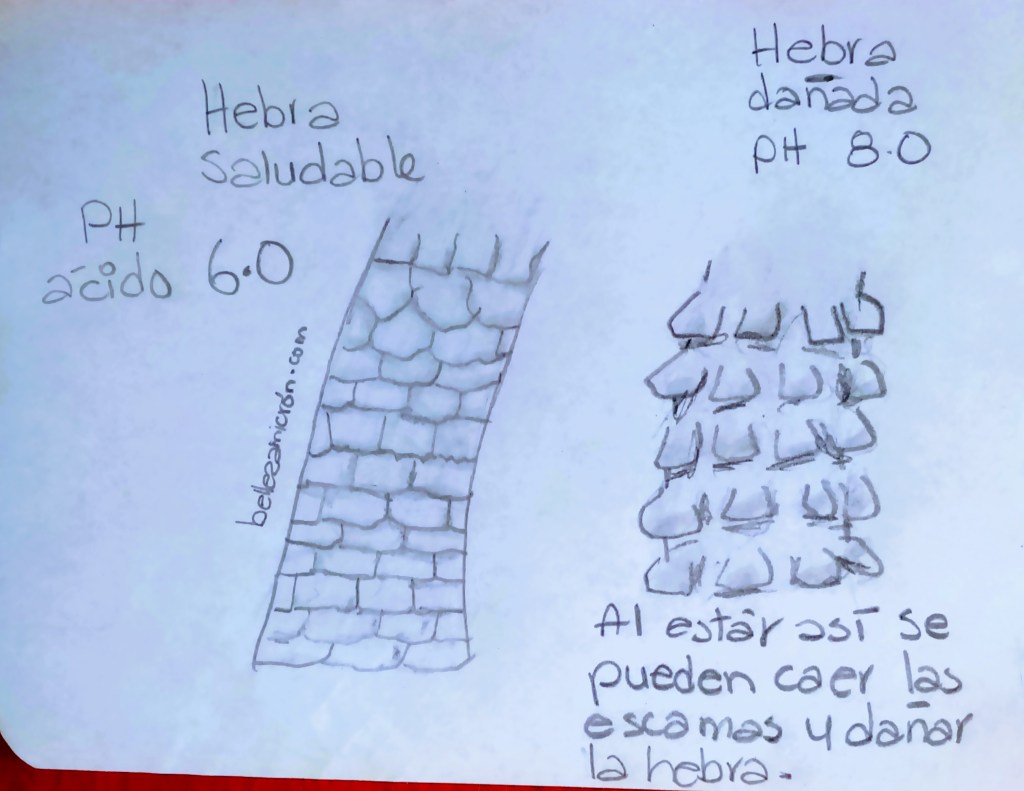 Hebra
saludable
PH
ácido 6.0
bellezamicrón.com
Hebra
dañada
pH 8.0
Al estár así se
pueden caer las
escamas y dañar
la hebra.